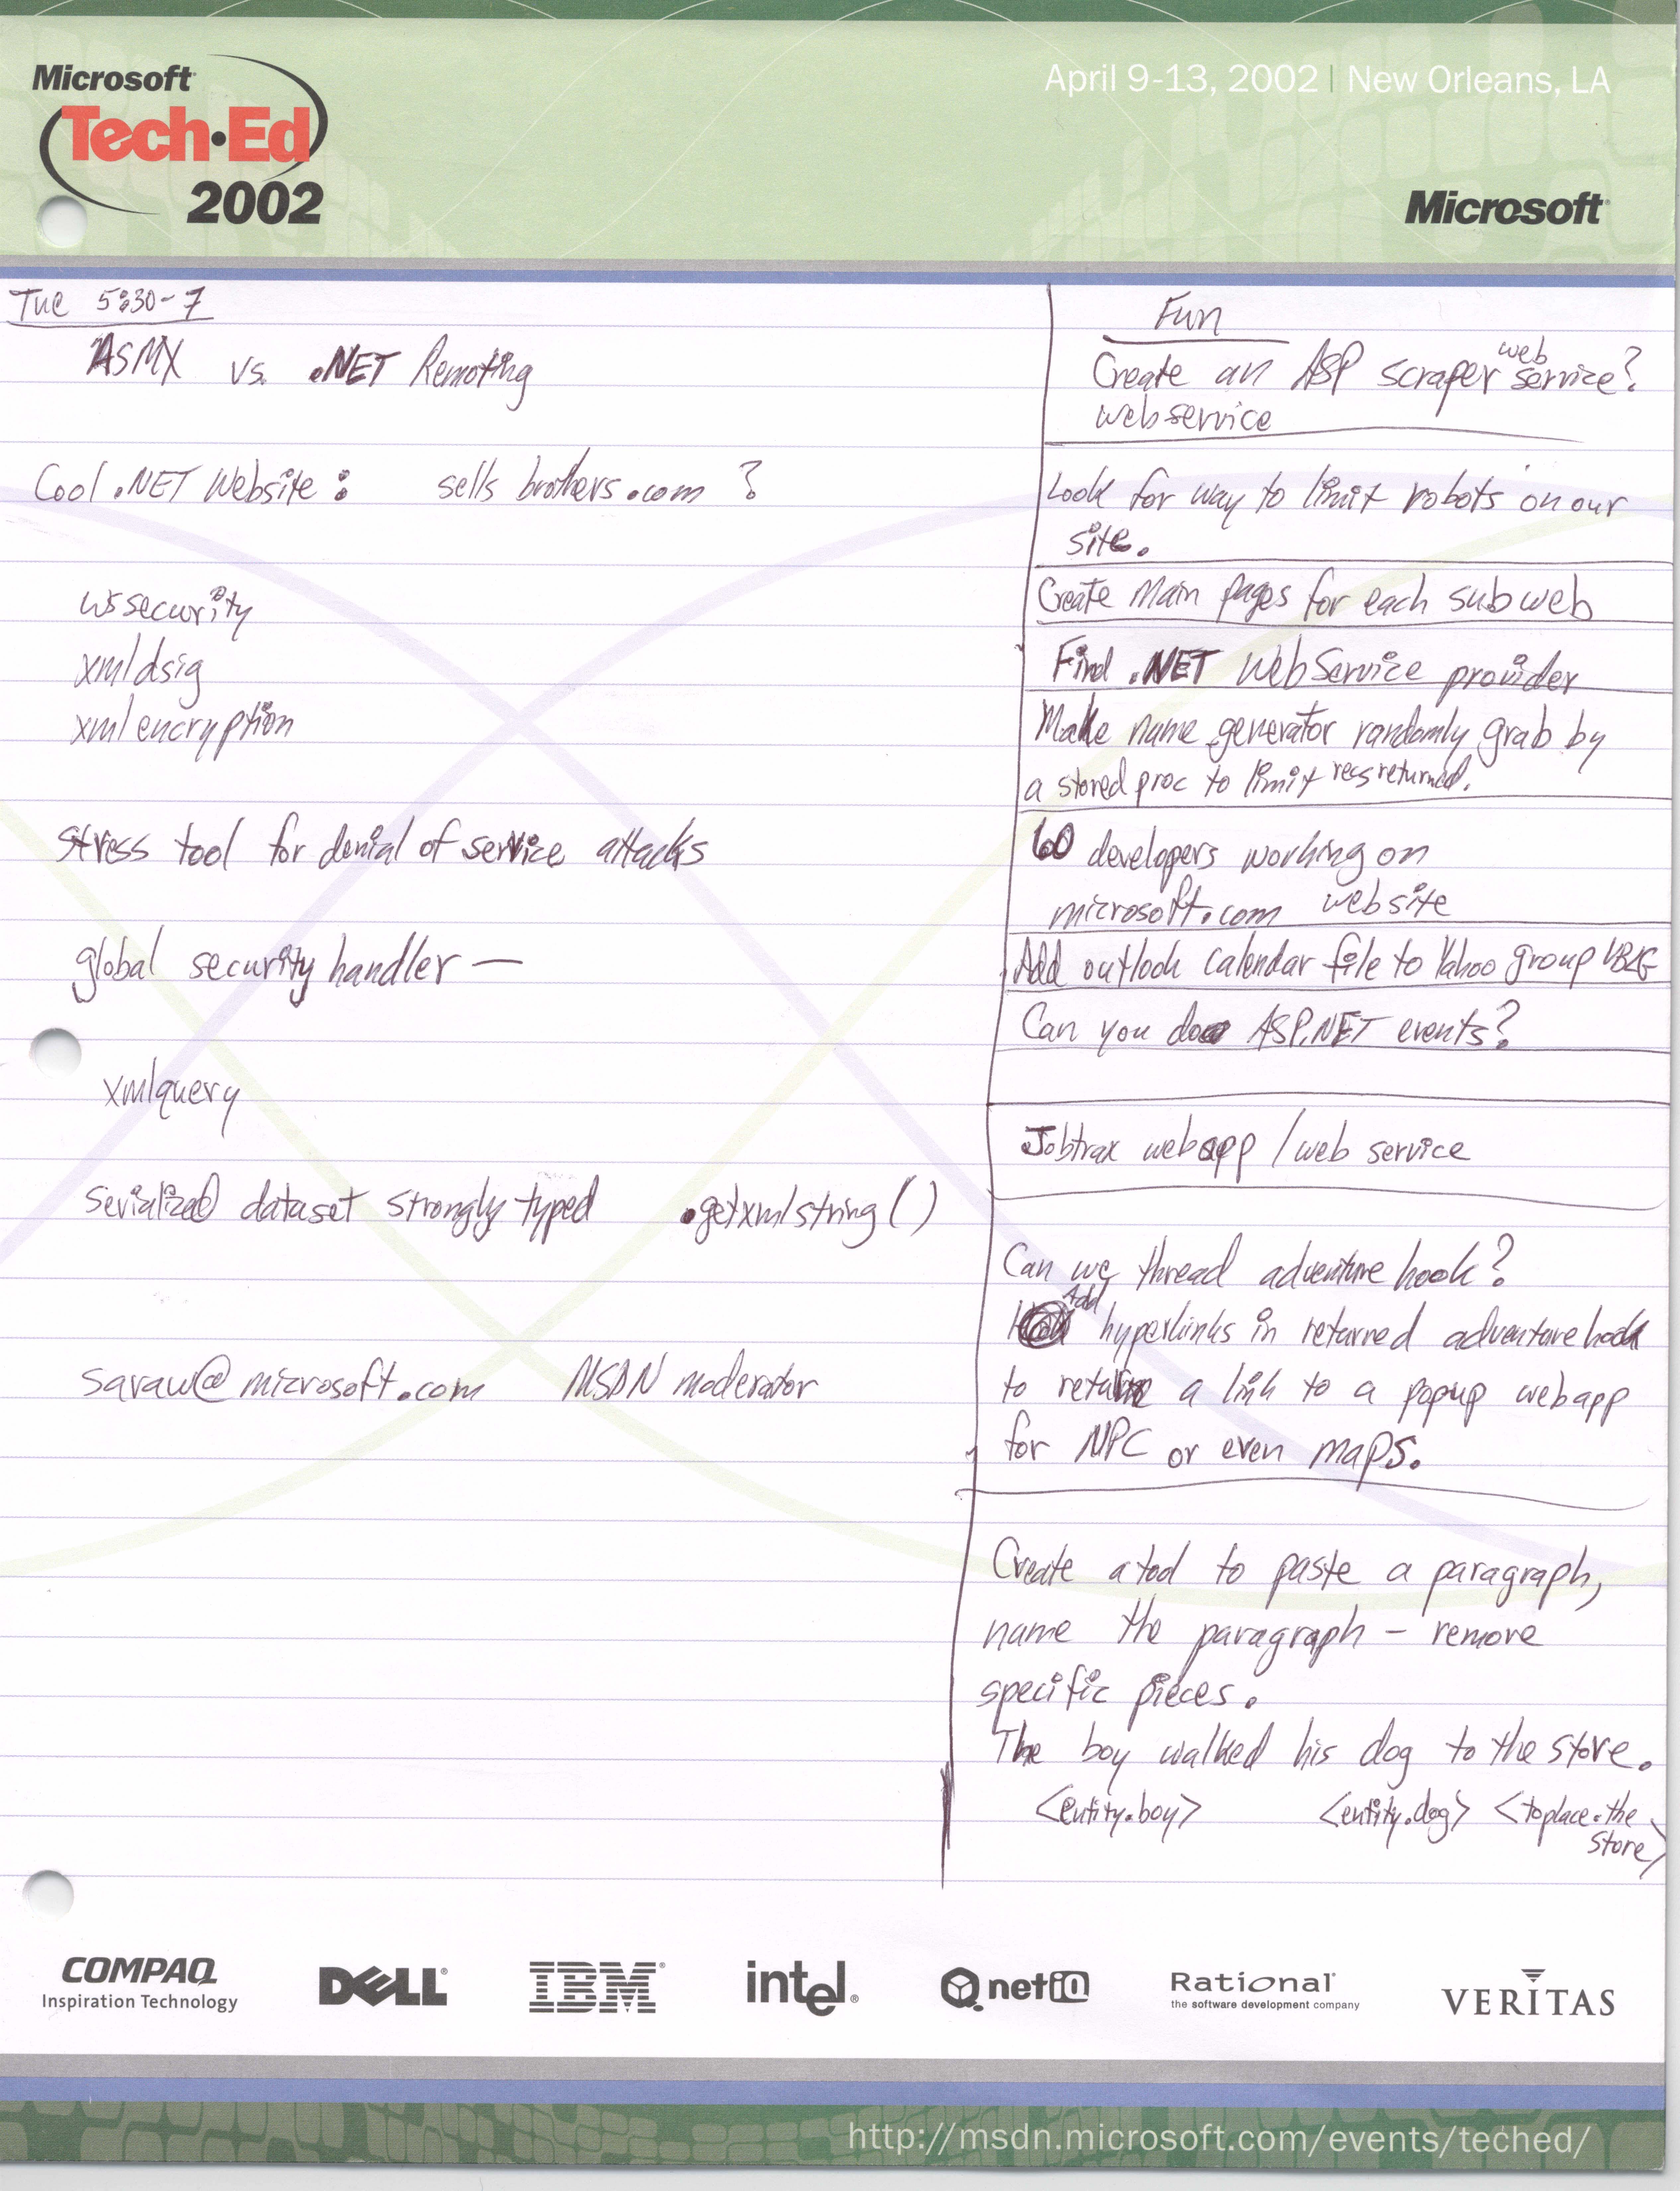 Microsoft
Tech·Ed
2002
April 9-13, 2002 | New Orleans, LA
Microsoft
Tue 5:30-7
ASMX vs. .NET Remoting
Cool .NET Website: sells brothers.com ?
wssecurity
xmldsig
xmlencryption
stress tool for denial of service attacks
global security handler —
xmlquery
Serialized dataset strongly typed .getxmlstring()
saraw@microsoft.com MSDN moderator
Fun
Create an ASP scraper web service?
webservice
Look for way to limit robots on our
site.
Create Main pages for each subweb
Find .NET WebService provider
Make name generator randomly grab by
a stored proc to limit recs returned.
60 developers working on
microsoft.com website
Add outlook calendar file to Yahoo group
Can you do ASP.NET events?
Jobtrax webapp / web service
Can we thread adventure hook?
Add hyperlinks in returned adventure hook
to return a link to a popup webapp
for NPC or even maps.
Create a tool to paste a paragraph,
name the paragraph - remove
specific pieces.
The boy walked his dog to the store.
<entity.boy> <entity.dog> <toplace.the
store>
COMPAQ
Inspiration Technology
DELL
IBM
intel
netiQ
Rational
the software development company
VERITAS
http://msdn.microsoft.com/events/teched/